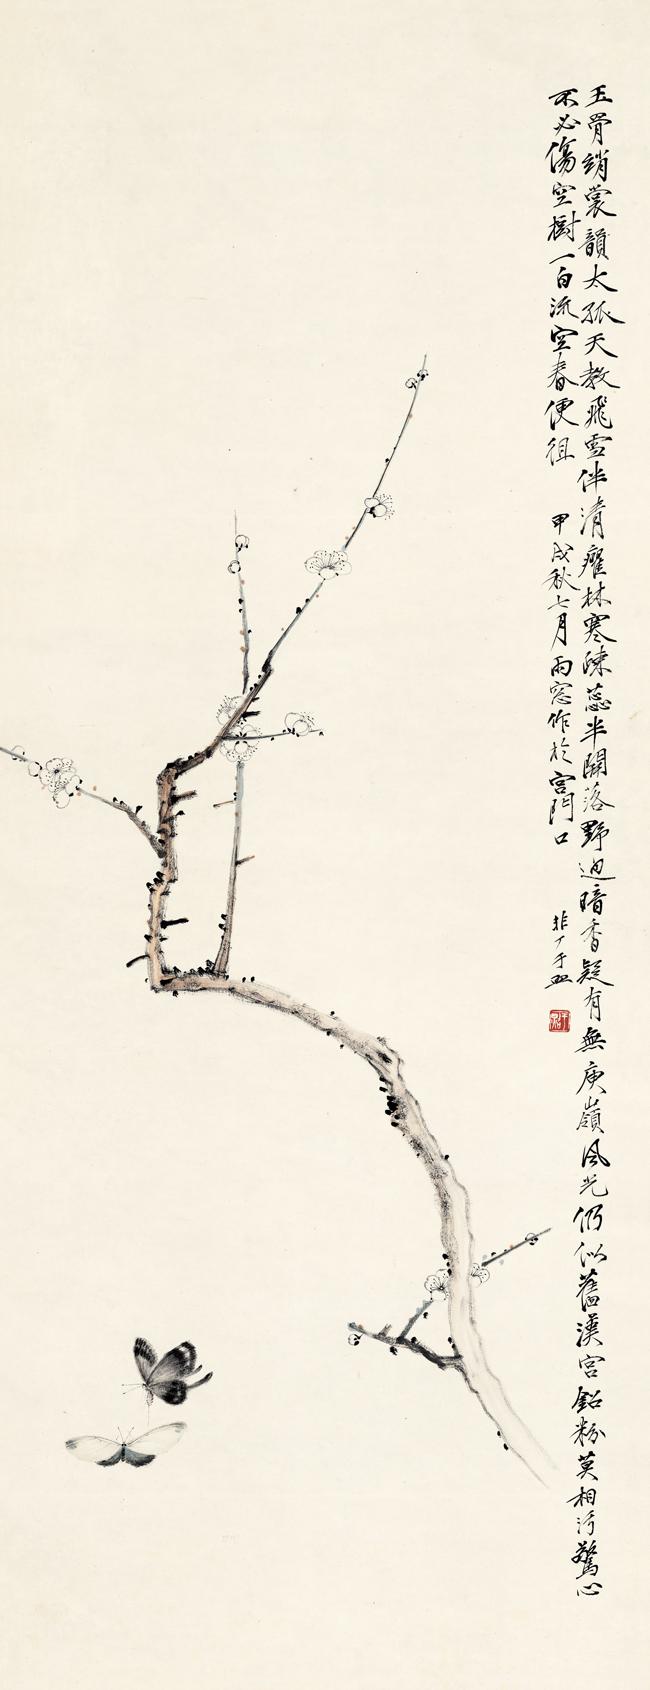 玉骨綃裳韻太孤天教飛雪伴清癯林寒疎蕊半開落野迥暗香疑有無庾嶺風光仍似舊漢宮鉛粉莫相污驚心
不必傷空樹一白流空春便徂
甲戌秋七月雨窓作於宮門口
非厂于照